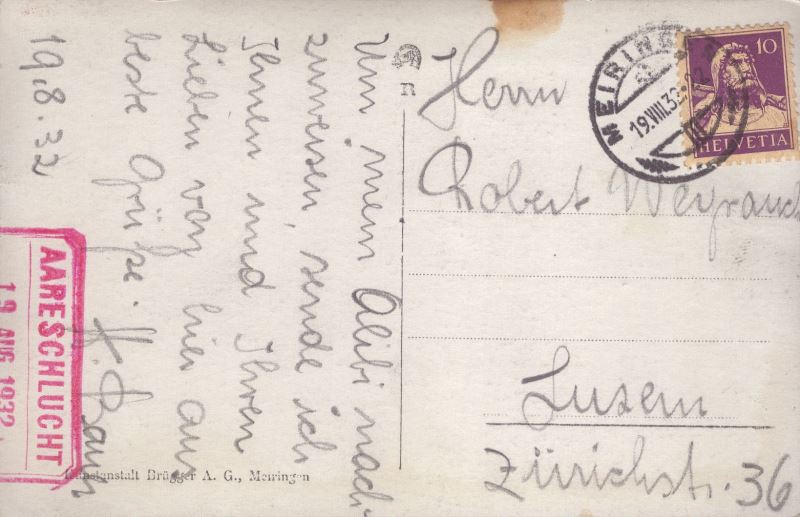 19.8.32
Um mein Alibi nach-
zuweisen, sende ich
Ihnen und Ihren
Lieben von hier aus
beste Grüße.
AARESCHLUCHT
19 AUG 1932
R
Kunstanstalt Brügger A. G., Meiringen
MEIRINGEN
19.VIII.32
10
HELVETIA
Herrn
Robert Weyrauch
Luzern
Zürichstr. 36